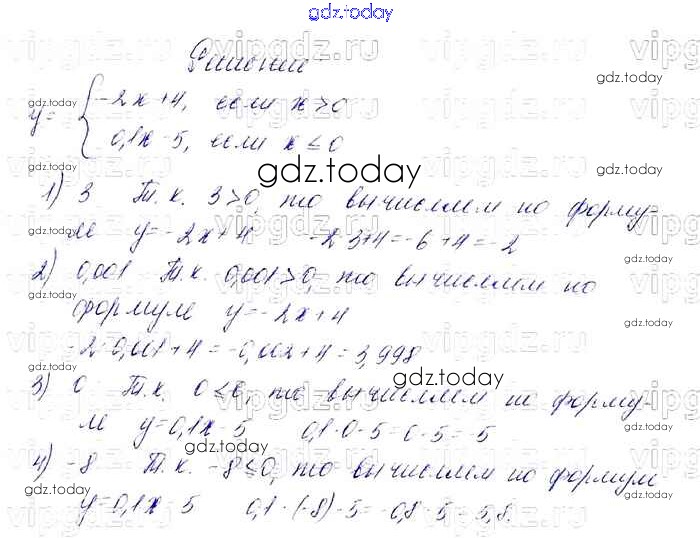 gdz.today
Решение
y = { -2x+4, если x>0
0,1x-5, если x≤0
gdz.today
1) 3 Т.к. 3>0, то вычисляем по форму-
ле y=-2x+4 -2·3+4=-6+4=-2
2) 0,001 Т.к. 0,001>0, то вычисляем по
формуле y=-2x+4
-2·0,001+4=-0,002+4=3,998
3) 0 Т.к. 0≤0, то вычисляем по форму-
ле y=0,1x-5 0,1·0-5=0-5=-5
4) -8 Т.к. -8≤0, то вычисляем по формуле
y=0,1x-5 0,1·(-8)-5=-0,8-5=-5,8.
gdz.today
gdz.today
gdz.today
gdz.today
gdz.today
gdz.today
gdz.today
gdz.today
gdz.today
gdz.today
vipgdz.ru